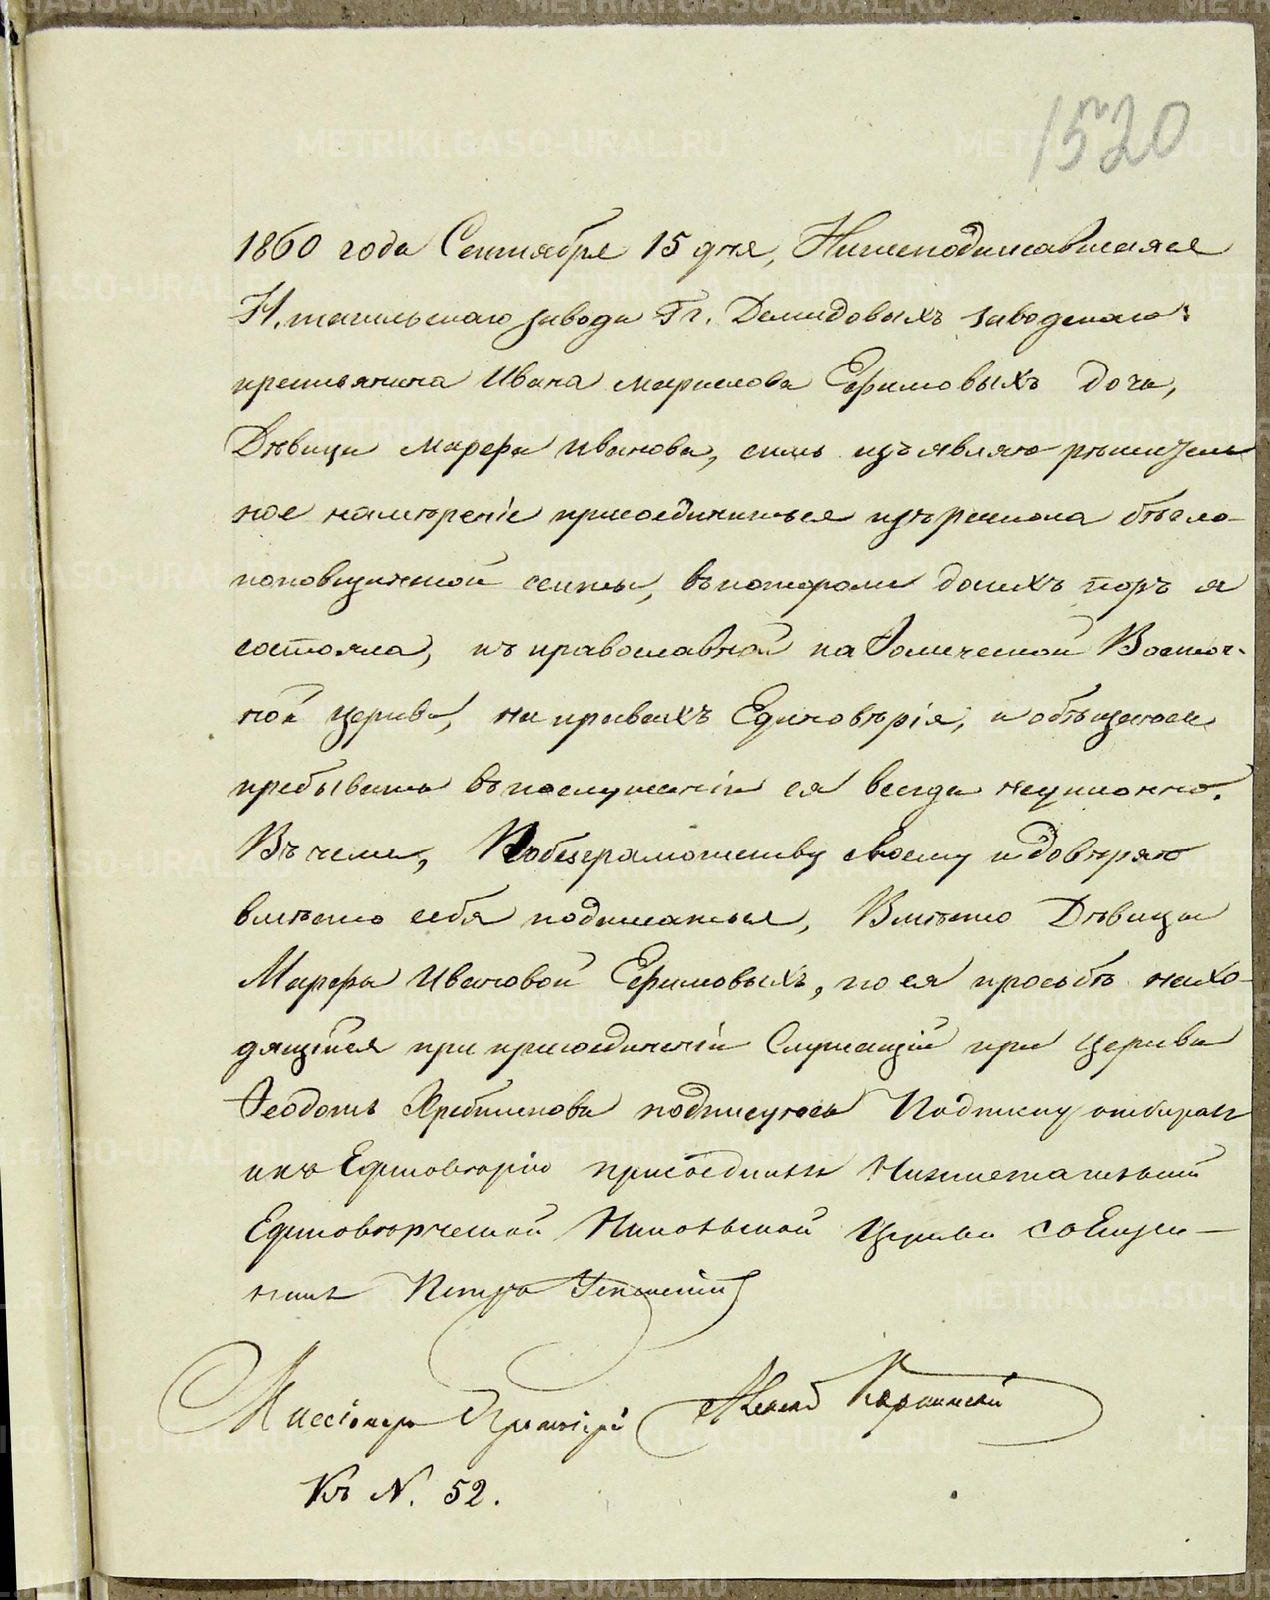 1520
1860 года Сентября 15 дня, Нижеподписавшаяся
Н. тагильскаго завода Гг. Демидовыхъ заводскаго
крестьянина Ивана Ефимовыхъ дочь,
Дѣвица Марфа Иванова, симъ изъявляю рѣшитель
ное намѣреніе присоединиться изъ раскола
поповщинской секты, въ которой до сихъ поръ я
состояла, къ православной каѳолической Восточ-
ной церкви, на правилахъ Единовѣрія, и обѣщаюсь
пребывать въ послушаніи ея всегда неуклонно.
Въ чемъ, По безграмотству своему и довѣряю
вмѣсто себя подписаться, Вмѣсто Дѣвицы
Марфы Ивановой Ефимовыхъ, по ея просьбѣ нахо-
дящійся при присоединеніи Служащій при церкви
Ѳеодотъ подписуюсь Подписку отбиралъ
и къ Единовѣрію присоединилъ Нижнетагильской
Единовѣрческой Никольской Церкви Священ-
никъ Петръ
Миссіонеръ Протоіерей
Къ N. 52.
METRIKI.GASO-URAL.RU